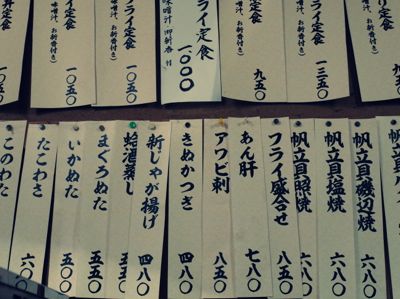 定食
味噌汁、お新香付き
一〇五〇
フライ定食
味噌汁、お新香付き
一〇五〇
フライ定食
味噌汁、お新香付
一〇〇〇
定食
九五〇
フライ定食
味噌汁、お新香付き
一三五〇
定食
お新香付き
九五〇
帆立貝磯辺焼
八〇
帆立貝塩焼
八〇
帆立貝照焼
八〇
フライ盛合せ
八五〇
あん肝
七八〇
アワビ刺
八五〇
きぬかつぎ
四八〇
新じゃが揚げ
四八〇
蛤酒蒸し
五五
まぐろぬた
五五〇
いかぬた
五〇
たこわさ
六
このわた
六〇